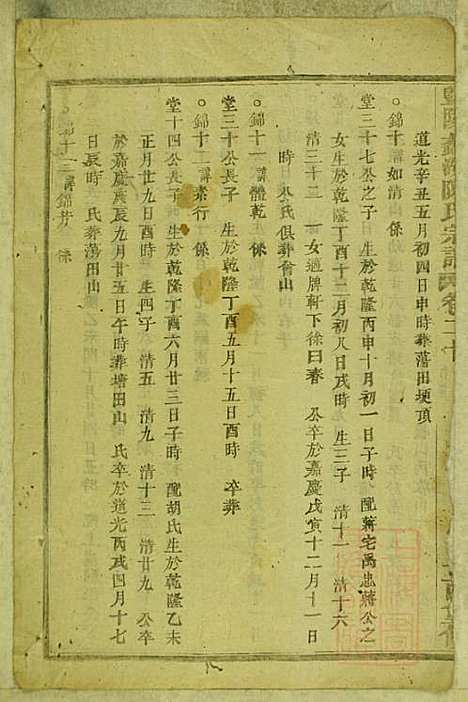 道光辛丑五月初四日申時葬蕩田埂頂
錦十 諱如清 係
堂三十七公之子 生於乾隆丙申十月初一日子時 配蔣宅禹忠蔣公之
女生於乾隆丁酉十二月初八日戌時 生三子 清十一 清十六
清三十三 一女適牌軒下徐曰春 公卒於嘉慶戊寅十二月十一日
時 氏俱葬 山
錦十一 諱體乾 係
堂三十公長子 生於乾隆丁酉五月十五日酉時 卒葬
錦十二 諱素行 係
堂十四公長子 生於乾隆丁酉六月廿三日子時 配胡氏生於乾隆乙未
正月廿九日酉時 生四子 清五 清九 清十三 清廿九 公卒
於嘉慶庚辰九月廿五日午時葬塘田山 氏卒於道光丙戌四月十七
日辰時 氏葬蕩田山
錦十三 諱錦芳 係
陳氏宗譜 卷二十